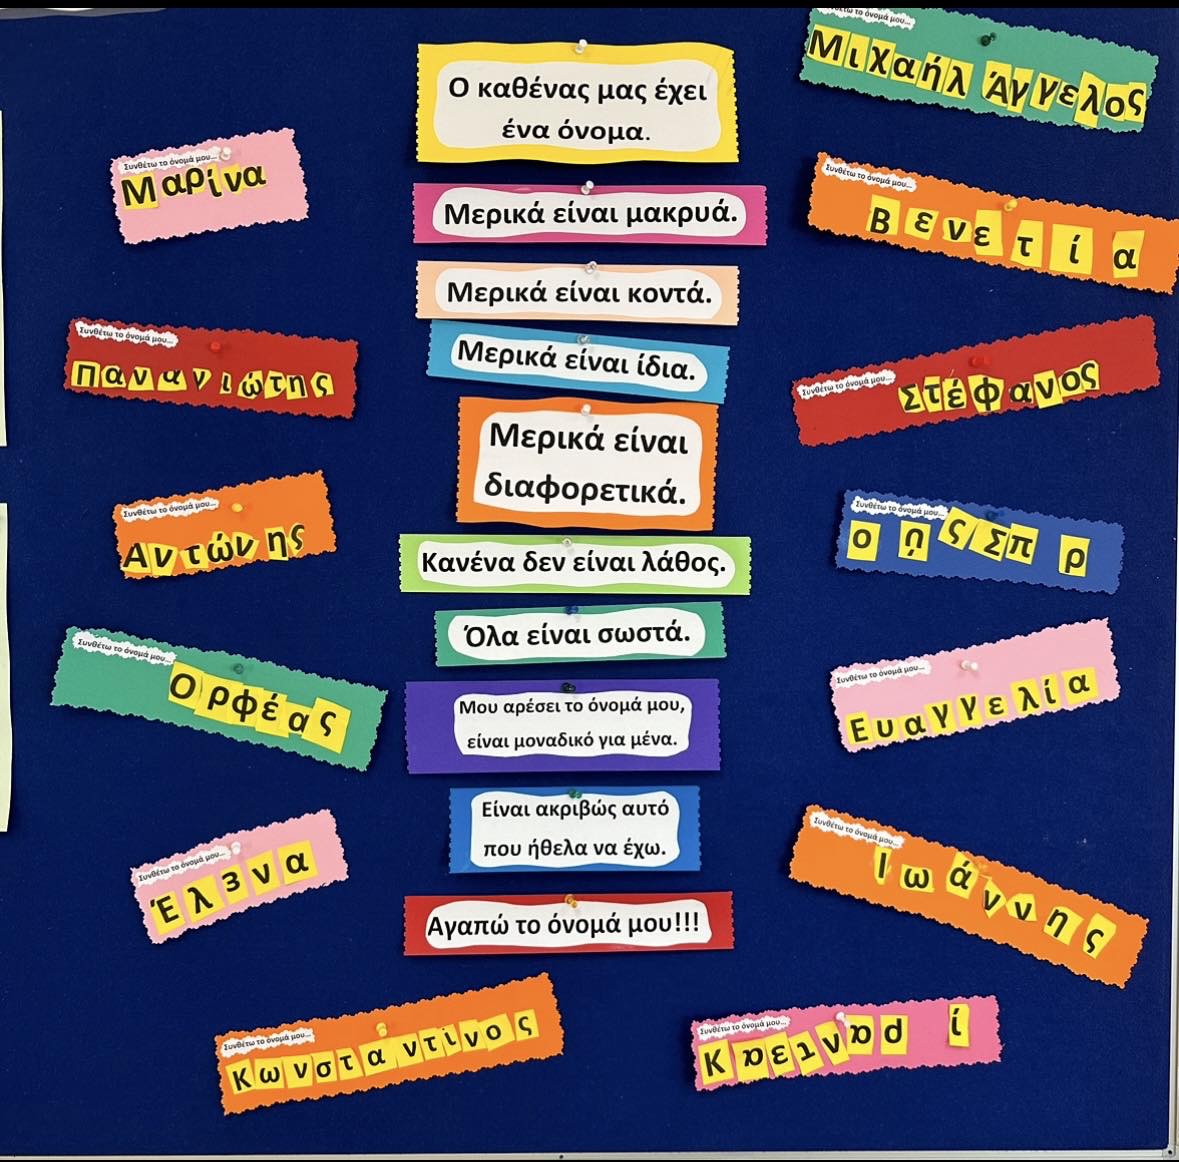 Ο καθένας μας έχει
ένα όνομα.
Μερικά είναι μακρυά.
Μερικά είναι κοντά.
Μερικά είναι ίδια.
Μερικά είναι
διαφορετικά.
Κανένα δεν είναι λάθος.
Όλα είναι σωστά.
Μου αρέσει το όνομά μου,
είναι μοναδικό για μένα.
Είναι ακριβώς αυτό
που ήθελα να έχω.
Αγαπώ το όνομά μου!!!
Συνθέτω το όνομά μου...
Μαρίνα
Συνθέτω το όνομά μου...
Παναγιώτης
Συνθέτω το όνομά μου...
Αντώνης
Συνθέτω το όνομά μου...
Ορφέας
Συνθέτω το όνομά μου...
Έλενα
Συνθέτω το όνομά μου...
Κωνσταντίνος
το όνομά μου...
Μιχαήλ Άγγελος
Συνθέτω το όνομά μου...
Βενετία
Συνθέτω το όνομά μου...
Στέφανος
Συνθέτω το όνομά μου...
Συνθέτω το όνομά μου...
Ευαγγελία
Συνθέτω το όνομά μου...
Ιωάννης
Συνθέτω το όνομά μου...